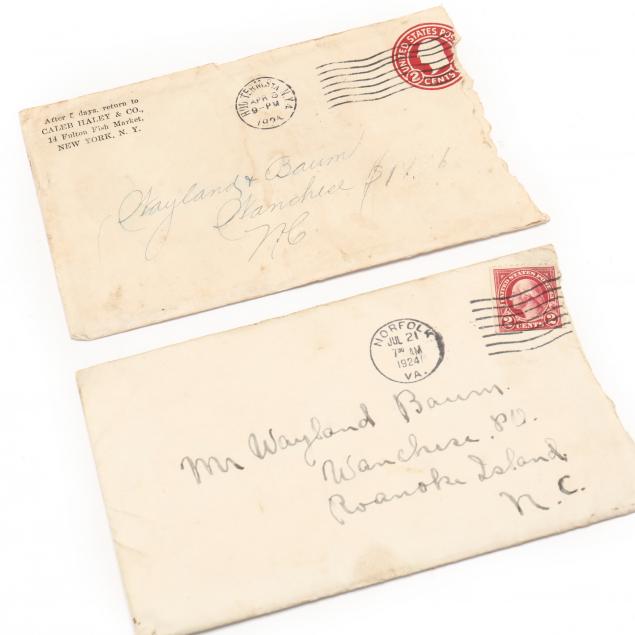 After 5 days, return to
CALEB HALEY & CO.,
14 Fulton Fish Market,
NEW YORK, N. Y.
HUD TERM. STA. N.Y.
APR 3
9-PM
1924
UNITED STATES POS
2 CENTS
Wayland & Baum
Wanchese
N.C.
UNITED STATES PO
2 CENTS 2
NORFOLK
JUL 21
7 30 AM
1924
VA.
Mr Wayland Baum.
Wanchese. PO.
Roanoke Island
N.C.